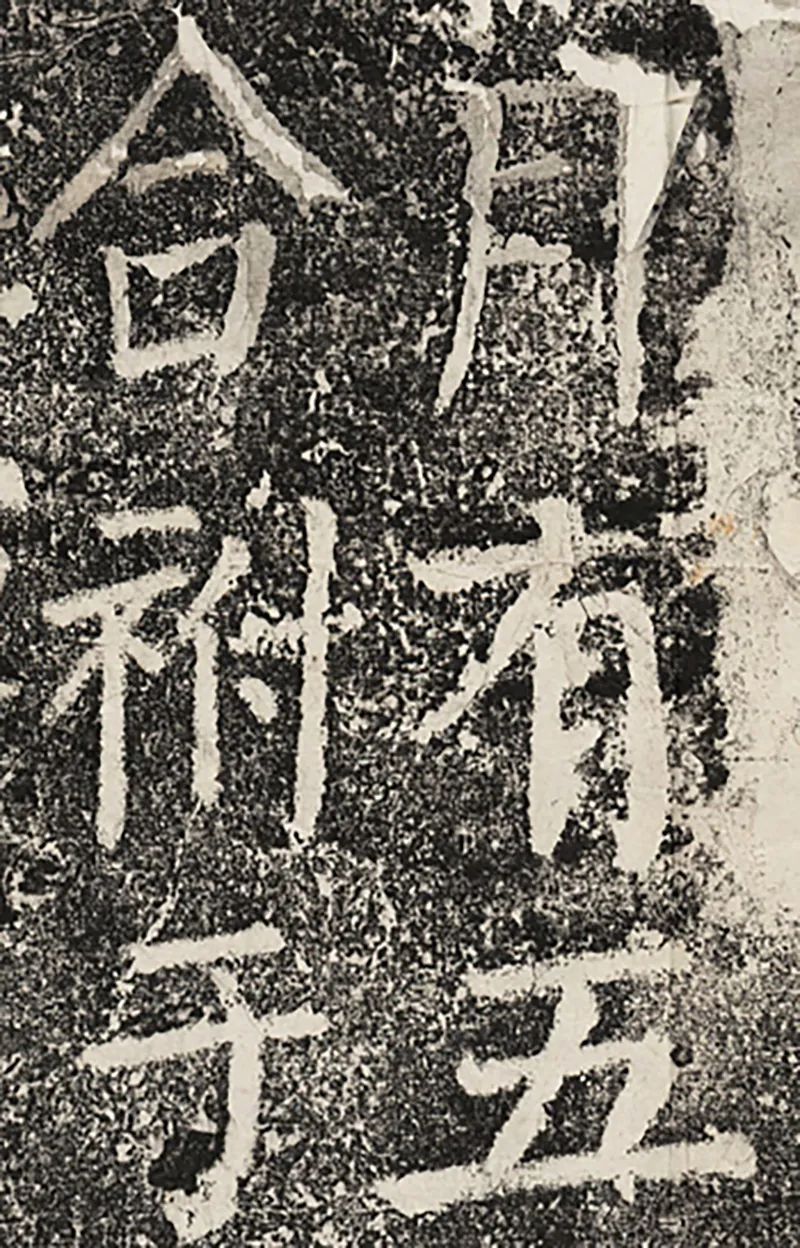 月有五
合祔于